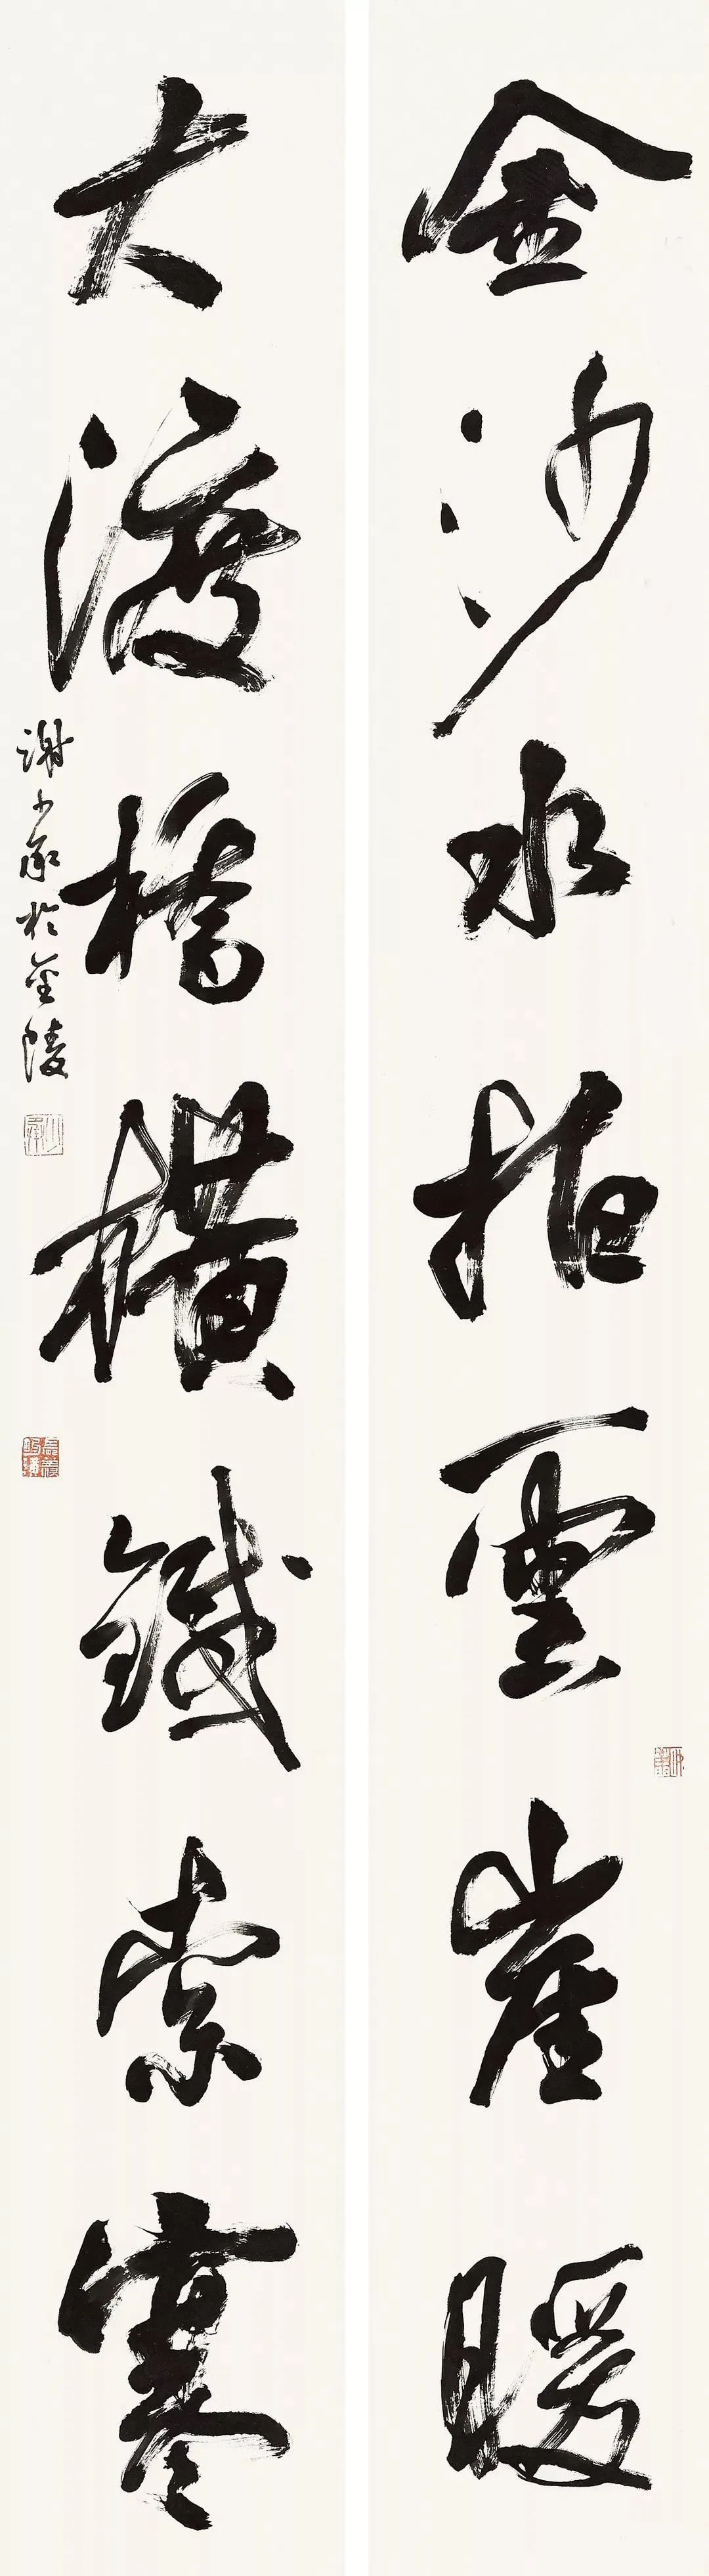 金沙水拍雲崖暖
大渡橋橫鐵索寒
謝少承於金陵